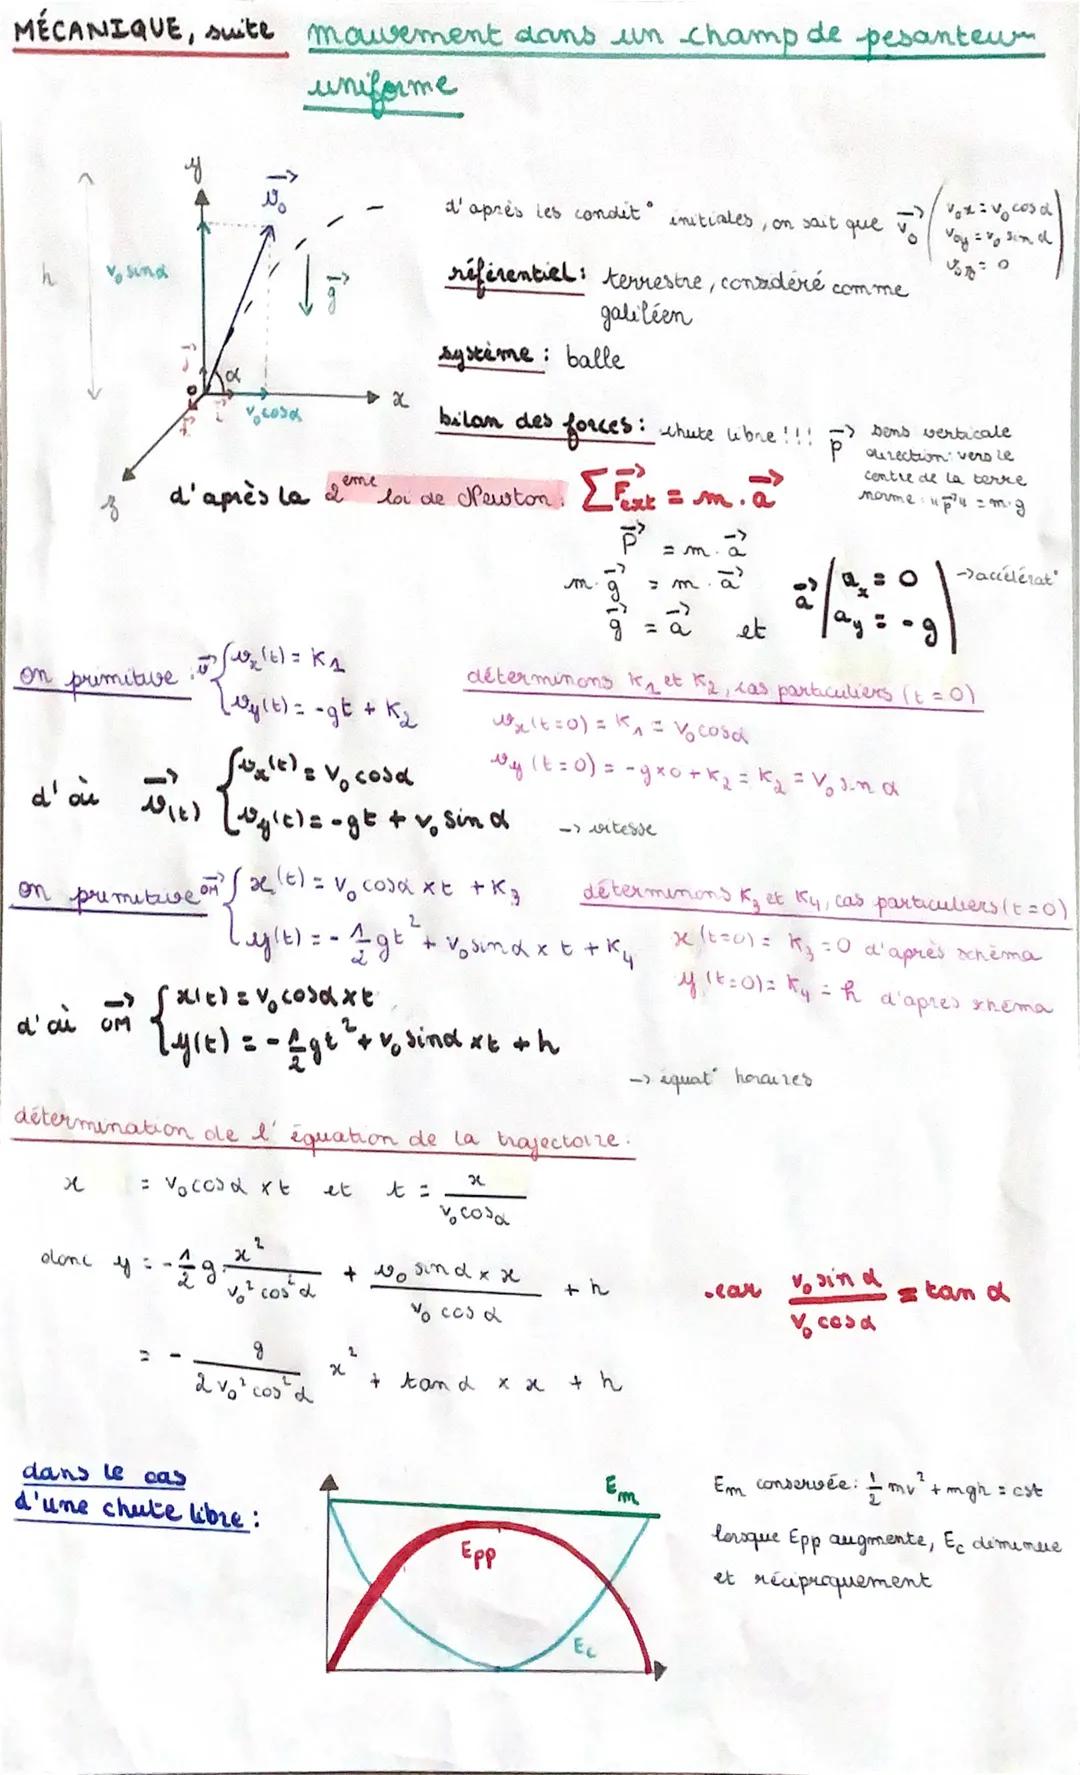 MÉCANIQUE, suite mouvement dans un champ de pesanteur
uniforme
y
v₀
h
v₀ sinα
g
j
α
o
x
k
i
v₀ cosα
z
d'après les condit° initiales, on sait que v₀ ( v₀x = v₀ cosα
v₀y = v₀ sinα
v₀z = 0
référentiel : terrestre, considéré comme
galiléen
système : balle
bilan des forces : chute libre !!! P sens verticale
direction: vers le
centre de la terre
norme : "P" = m·g
d'après la 2ème loi de Newton : ∑F ext = m . a
P = m . a
m . g = m . a
g = a et a ( ax = 0
ay = -g ) -> accélérat°
on primitive : v { vx(t) = K1
vy(t) = -gt + K2
déterminons K1 et K2, cas particuliers (t = 0)
vx(t=0) = K1 = V₀ cosα
vy (t=0) = -g×0 + K2 = K2 = V₀ sin α
d'où v(t) { vx(t) = V₀ cosα
vy(t) = -gt + v₀ sin α -> vitesse
on primitive OM { x(t) = V₀ cosα × t + K3
y(t) = - 1/2 gt² + V₀ sin α × t + K4
déterminons K3 et K4, cas particuliers (t=0)
x (t=0) = K3 = 0 d'après schéma
y (t=0) = K4 = h d'après shéma
d'où OM { x(t) = V₀ cosα × t
y(t) = - 1/2 gt² + v₀ sinα × t + h
-> équat° horaires
détermination de l'équation de la trajectoire.
x = V₀ cosα × t et t = x / V₀ cosα
donc y = - 1/2 g . x² / V₀² cos²α + v₀ sinα × x / V₀ cosα + h
.car V₀ sin α / V₀ cosα = tan α
= - g / 2 V₀² cos²α x² + tan α × x + h
dans le cas
d'une chute libre :
Em
Epp
Ec
Em conservée : 1/2 mv² + mgh = cst
lorsque Epp augmente, Ec diminue
et réciproquement